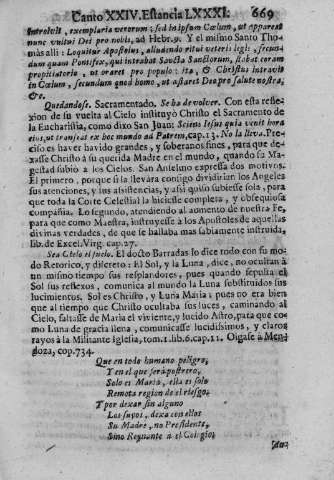 Canto XXIV. Estancia LXXXI. 669
Introivit, exemplaria verorum; sed in ipsum Cœlum, ut appareat
nunc vultui Dei pro nobis, ad Hebr. 9. Y el mismo Santo Tho-
màs alli: Loquitur Apostolus, alludendo ritui veteris legis, secun-
dum quam Pontifex, qui intrabat Sancta Sanctorum, stabat coram
propitiatorio, ut oraret pro populo: ita, & Christus intravit
in Cœlum, secundum quod homo, ut astaret Deo pro salute nostra,
&c.
Quedandose. Sacramentado. Se ha de volver. Con esta refle-
xion de su vuelta al Cielo instituyò Christo el Sacramento de
la Eucharistia, como dixo San Juan: Sciens Iesus quia venit hora
eius, ut transeat ex hoc mundo ad Patrem, cap. 13. No la lleva. Pre-
ciso es haver havido grandes, y soberanos fines, para que de-
xasse Christo à su querida Madre en el mundo, quando su Ma-
gestad subio a los Cielos. San Anselmo expressa dos motivos.
El primero, porque si la llevara contigo dividirian los Angeles
sus atenciones, y sus asistencias, y assi quiso subiesse sola, para
que toda la Corte Celestial la hiciesse completa, y obsequiosa
compañia. Lo segundo, atendiendo al aumento de nuestra Fe,
para que como Maestra, instruyesse à los Apostoles de aquellas
divinas verdades, de que se hallaba mas sabiamente instruida,
lib. de Excel. Virg. cap. 27.
Sea Cielo el suelo. El docto Barradas lo dice todo con su mo-
do Retorico, y discreto: El Sol, y la Luna, dice, no ocultan à
un mismo tiempo sus resplandores, pues quando sepulta el
Sol sus reflexos, comunica al mundo la Luna substituidos sus
lucimientos. Sol es Christo, y Luna Maria: pues no era bien
que al tiempo que Christo ocultaba sus luces, caminando al
Cielo, faltasse de Maria el viviente, y lucido Astro, para que co-
mo Luna de gracia llena, comunicasse lucidissimos, y claros
rayos à la Militante Iglesia, tom. 1. lib. 6. cap. 11. Oigase à Men-
doza, cop. 734.
Que en todo humano peligro,
Y en el que serà postrero,
Solo es Maria, ella es solo
Remota region de el riesgo.
Y por dexar sin alguno
Los suyos, dexa con ellos
Su Madre, no Presidente,
Sino Reynante à el Colegio;